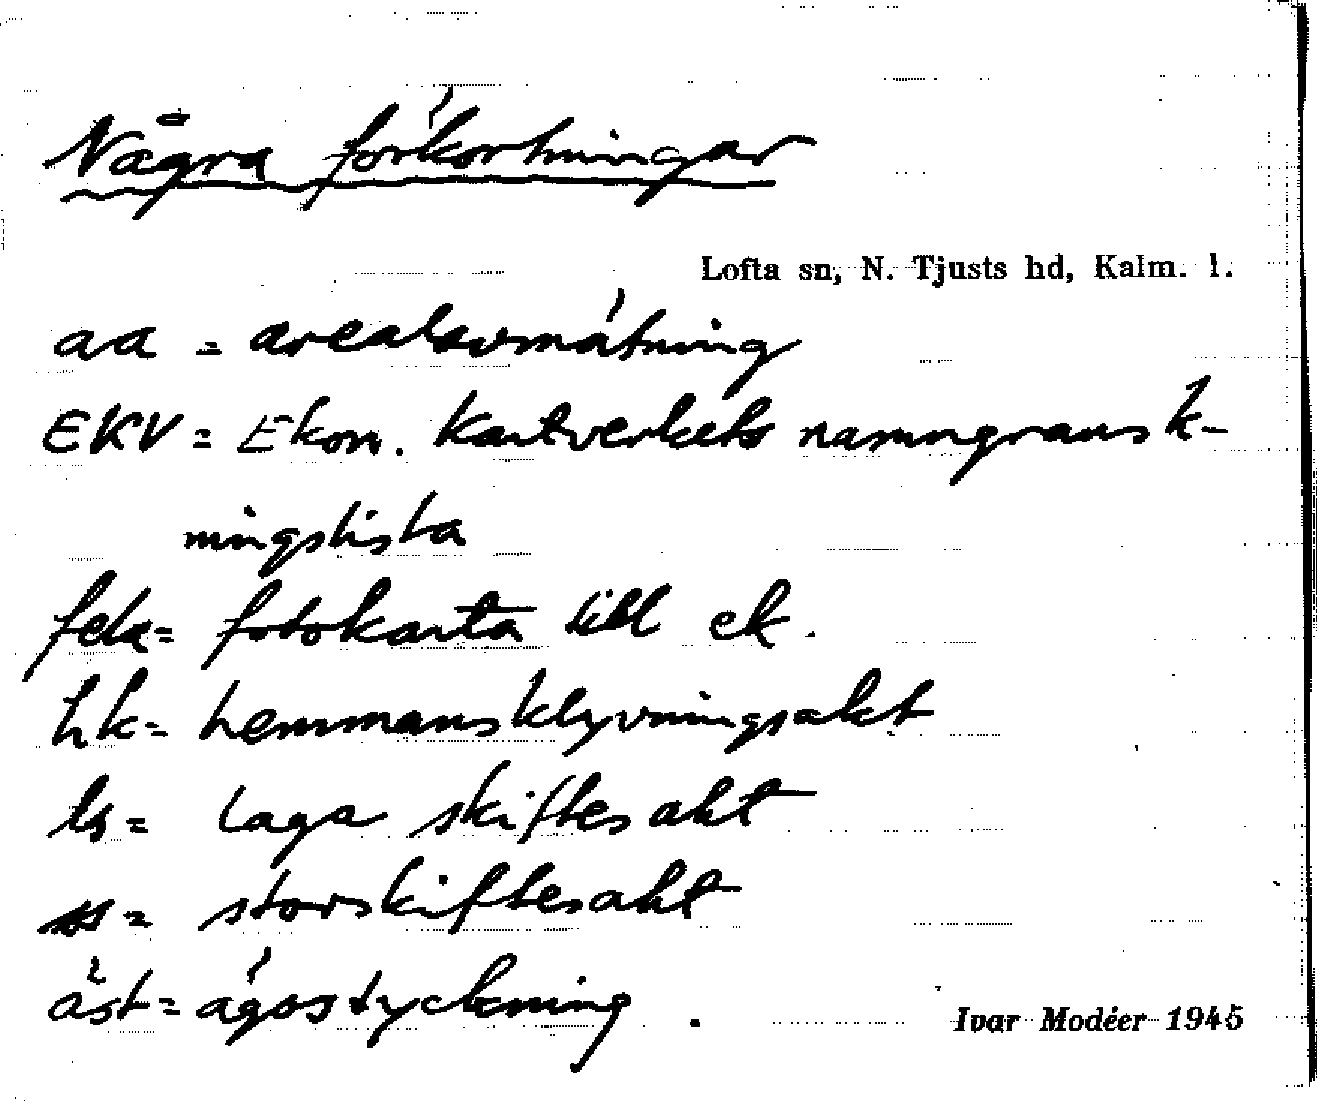 Några förkortningar
Lofta sn, N. Tjusts hd, Kalm. l.
aa = arealavmätning
EKV = Ekon. Kartverkets namngransk-
ningslista
fek = fotokarta till ek.
hk = hemmansklyvningsakt
ls = laga skiftesakt
ss = storskiftesakt
äst = ägostyckning.
Ivar Modéer 1945